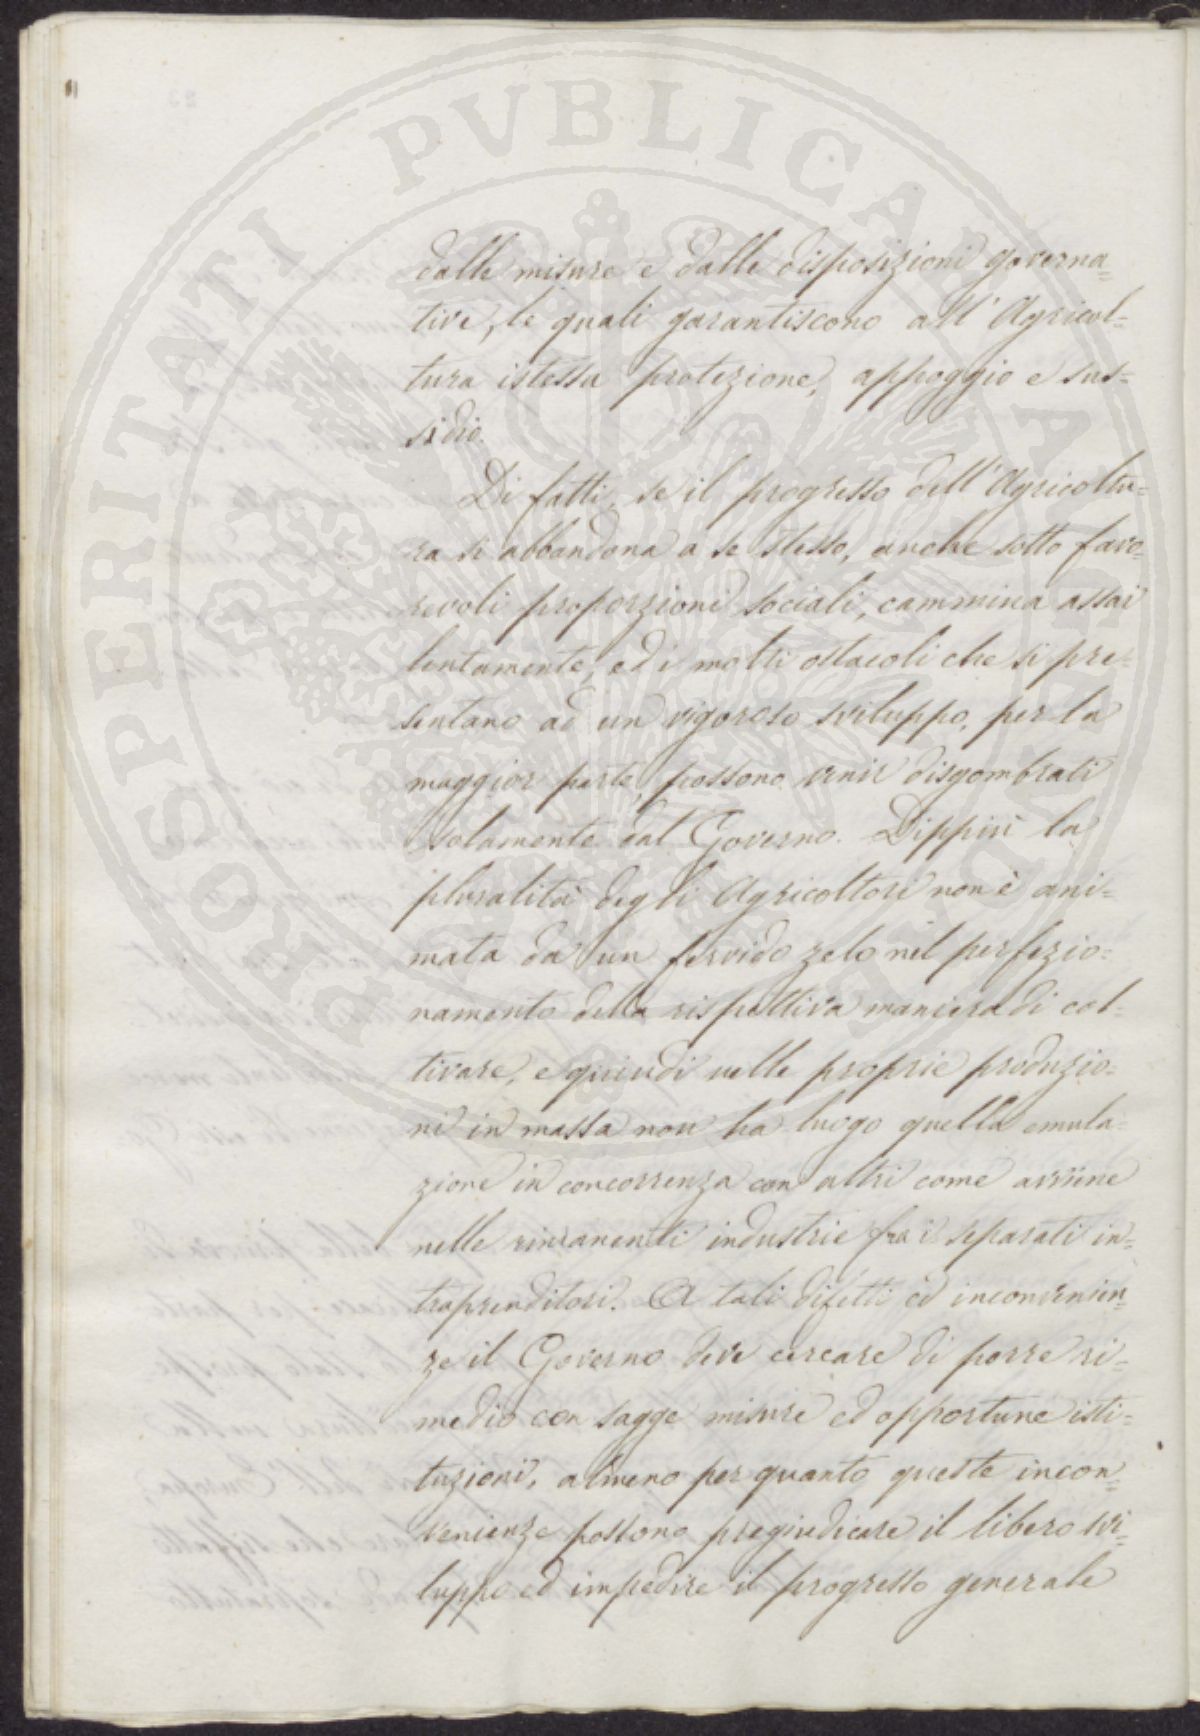 PROSPERITATI PVBLICAE AVGENDAE
dalle misure e dalle disposizioni governa=
tive, le quali garantiscono all'Agricol=
tura istessa protezione, appoggio e sus=
sidio.
Di fatti, se il progresso dell'Agricoltu=
ra si abbandona a se stesso, anche sotto favo=
revoli proporzioni sociali, cammina assai
lentamente, ed i molti ostacoli che si pre=
sentano ad un vigoroso sviluppo, per la
maggior parte, possono venir disgombrati
solamente dal Governo. Dippiù la
pluralità degli Agricoltori non è ani=
mata da un fervido zelo nel perfezio=
namento della rispettiva maniera di col=
tivare, e quindi nelle proprie produzio=
ni in massa non ha luogo quella emula=
zione in concorrenza con altri come avviene
nelle rimanenti industrie fra i separati in=
traprenditori. A tali difetti ed inconvenien=
ze il Governo deve cercare di porre ri=
medio con sagge misure ed opportune isti=
tuzioni, almeno per quanto queste incon=
venienze possono pregiudicare il libero svi=
luppo ed impedire il progresso generale